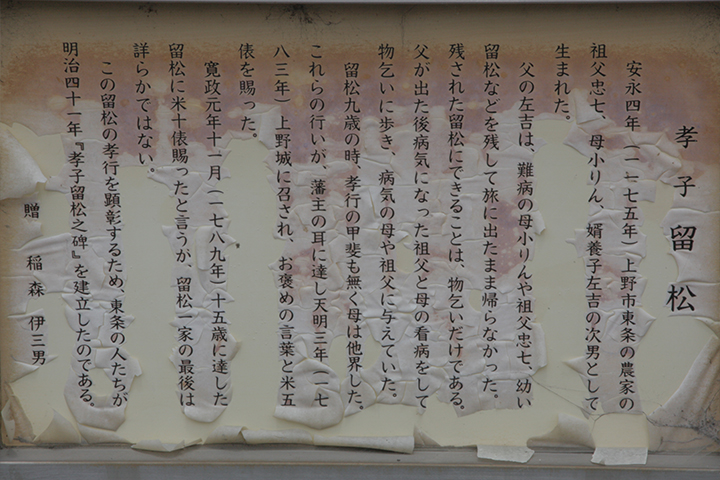 孝子留松
安永四年（一一七五年）上野市東条の農家の
祖父忠七、母小りん、婿養子左吉の次男として
生まれた。
父の左吉は、難病の母小りんや祖父忠七、幼い
留松などを残して旅に出たまま帰らなかった。
残された留松にできることは、物乞いだけである。
父が出た後病気になった祖父と母の看病をして
物乞いに歩き、病気の母や祖父に与えていた。
留松九歳の時、孝行の甲斐も無く母は他界した。
これらの行いが、藩主の耳に達し天明三年（一七
八三年）上野城に召され、お褒めの言葉と米五
俵を賜った。
寛政元年十一月（一七八九年）十五歳に達した
留松に米十俵賜ったと言うが、留松一家の最後は
詳らかではない。
この留松の孝行を顕彰するため、東条の人たちが
明治四十一年『孝子留松之碑』を建立したのである。
贈　稲森　伊三男